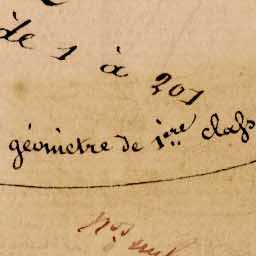 de 1 à 201
géomètre de 1ère class